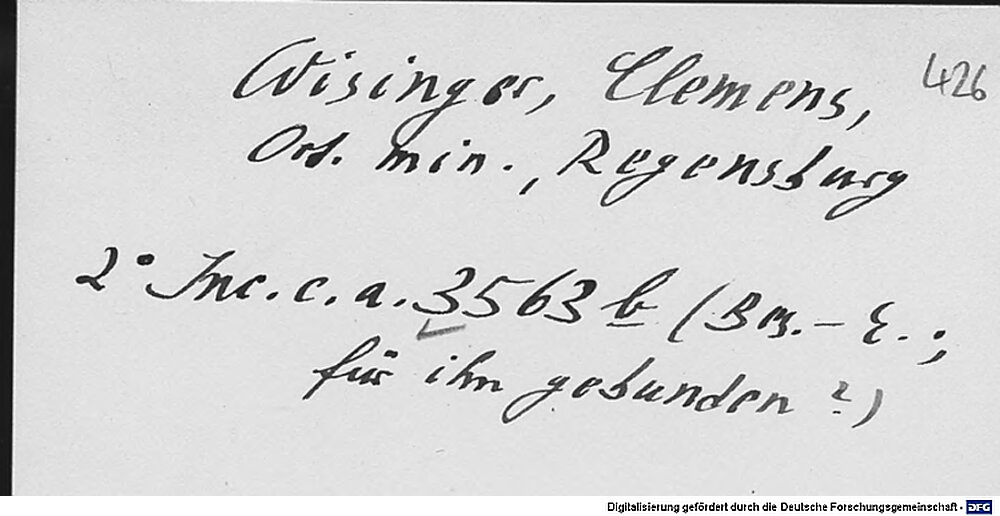 Wisinger, Clemens, 426
Ord. min., Regensburg
2° Inc. c. a. 3563 b (Bes. - E.;
für ihn gebunden?)
Digitalisierung gefördert durch die Deutsche Forschungsgemeinschaft - DFG